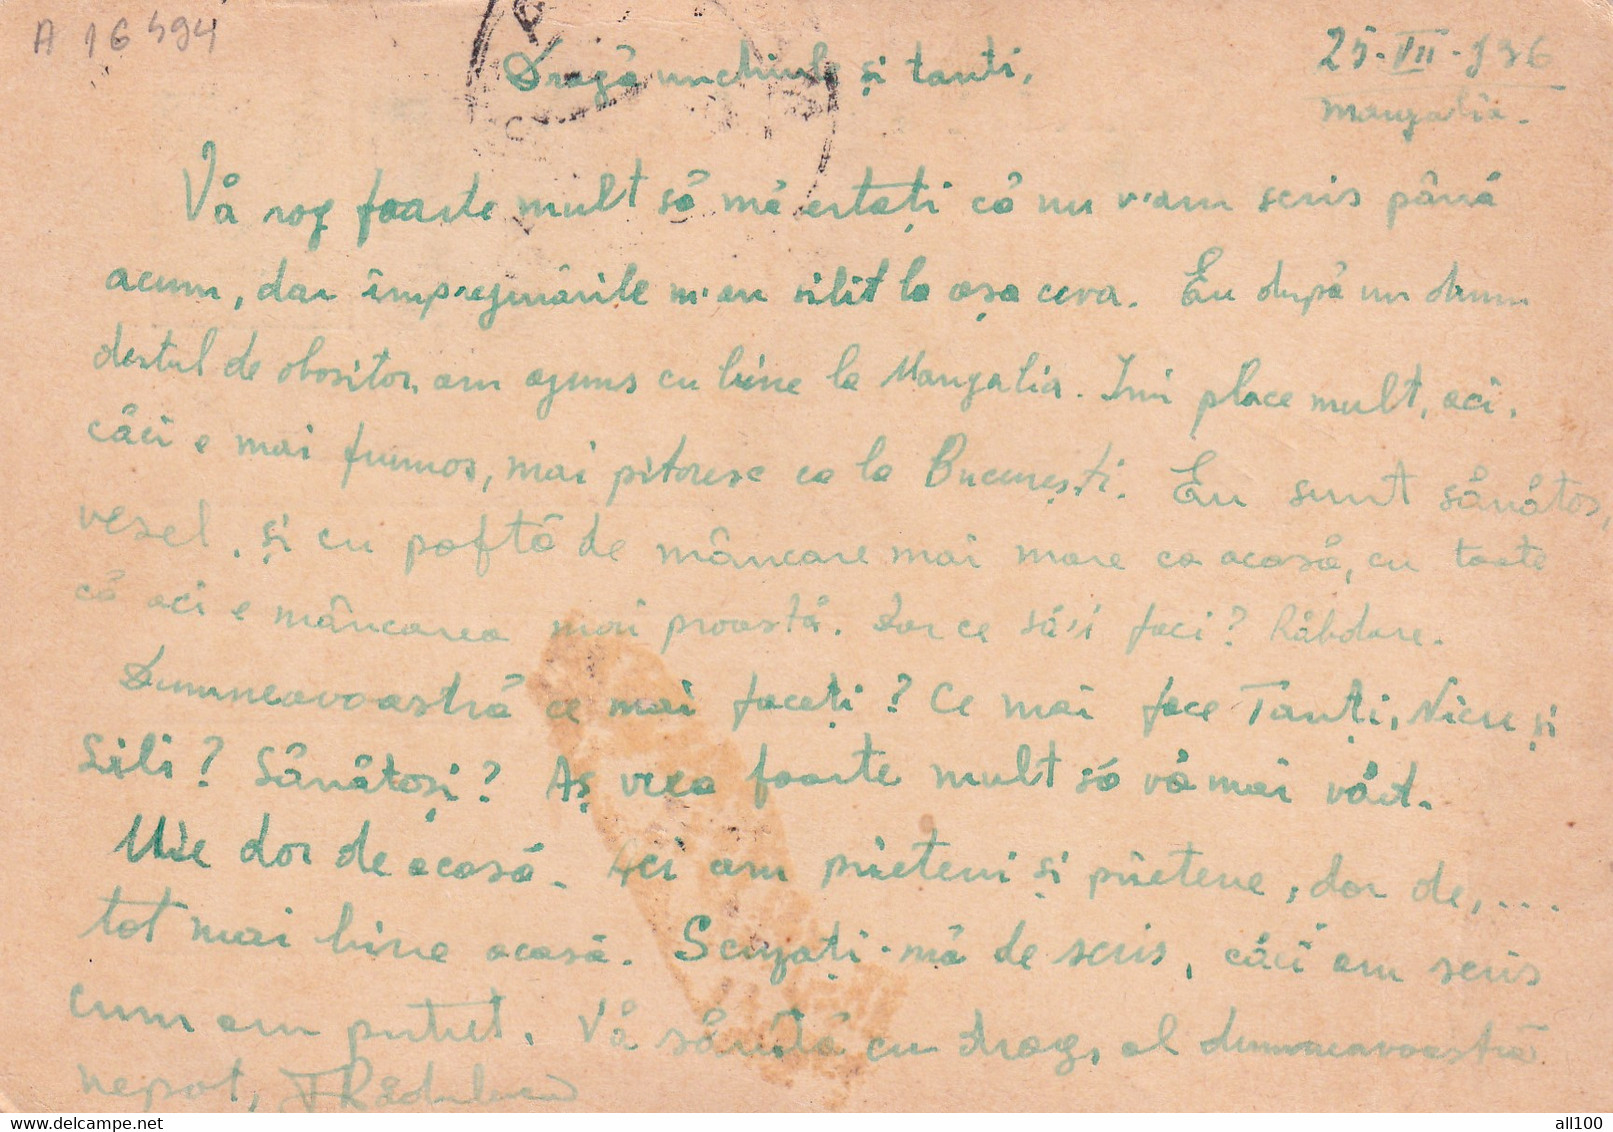 A 16494
25-VII-936
Mangalia.
Dragă unchiule și tanti,
Vă rog foarte mult să mă ertați că nu v'am scris până
acum, dar împrejurările m'au silit la așa ceva. Eu după un drum
destul de obositor, am ajuns cu bine la Mangalia. Imi place mult, aci,
căci e mai frumos, mai pitoresc ca la București. Eu sunt sănătos,
vesel, și cu poftă de mâncare mai mare ca acasă, cu toate
că aci e mâncarea mai proastă. Dar ce să-i faci? Răbdare.
Dumneavoastră ce mai faceți? Ce mai face Tanți, Nicu și
Lili? Sănătoși? Aș vrea foarte mult să vă mai văd.
Mi-e dor de acasă. Aci am prieteni și prietene, dar de, ...
tot mai bine acasă. Scuzați-mă de scris, căci am scris
cum am putut. Vă sărută cu drag, al dumneavoastră
nepot, Rădulescu
www.delcampe.net
all100